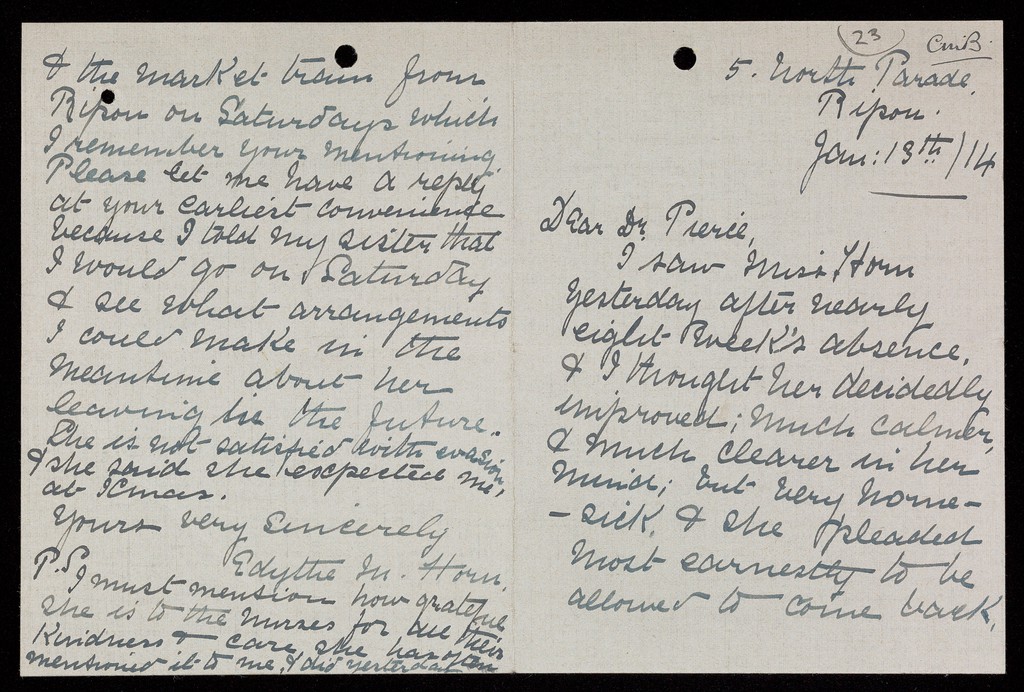 23
CmB.
5. North Parade,
Ripon.
Jan: 13th/14
Dear Dr. Pierce,
I saw Miss Horn
yesterday after nearly
eight week's absence,
& I thought her decidedly
improved; much calmer,
& much clearer in her
mind; but very home-
-sick, & she pleaded
most earnestly to be
allowed to come back,
& the market train from
Ripon on Saturdays which
I remember your mentioning
Please let me have a reply
at your earliest convenience
because I told my sister that
I would go on Saturday
& see what arrangements
I could make in the
meantime about her
leaving in the future.
She is not satisfied with evasion,
& she said she expected me
at Xmas.
Yours very sincerely
Edythe M. Horn.
P.S. I must mention how grateful
she is to the Nurses for all their
kindness & care, she has often
mentioned it to me, & did yesterday